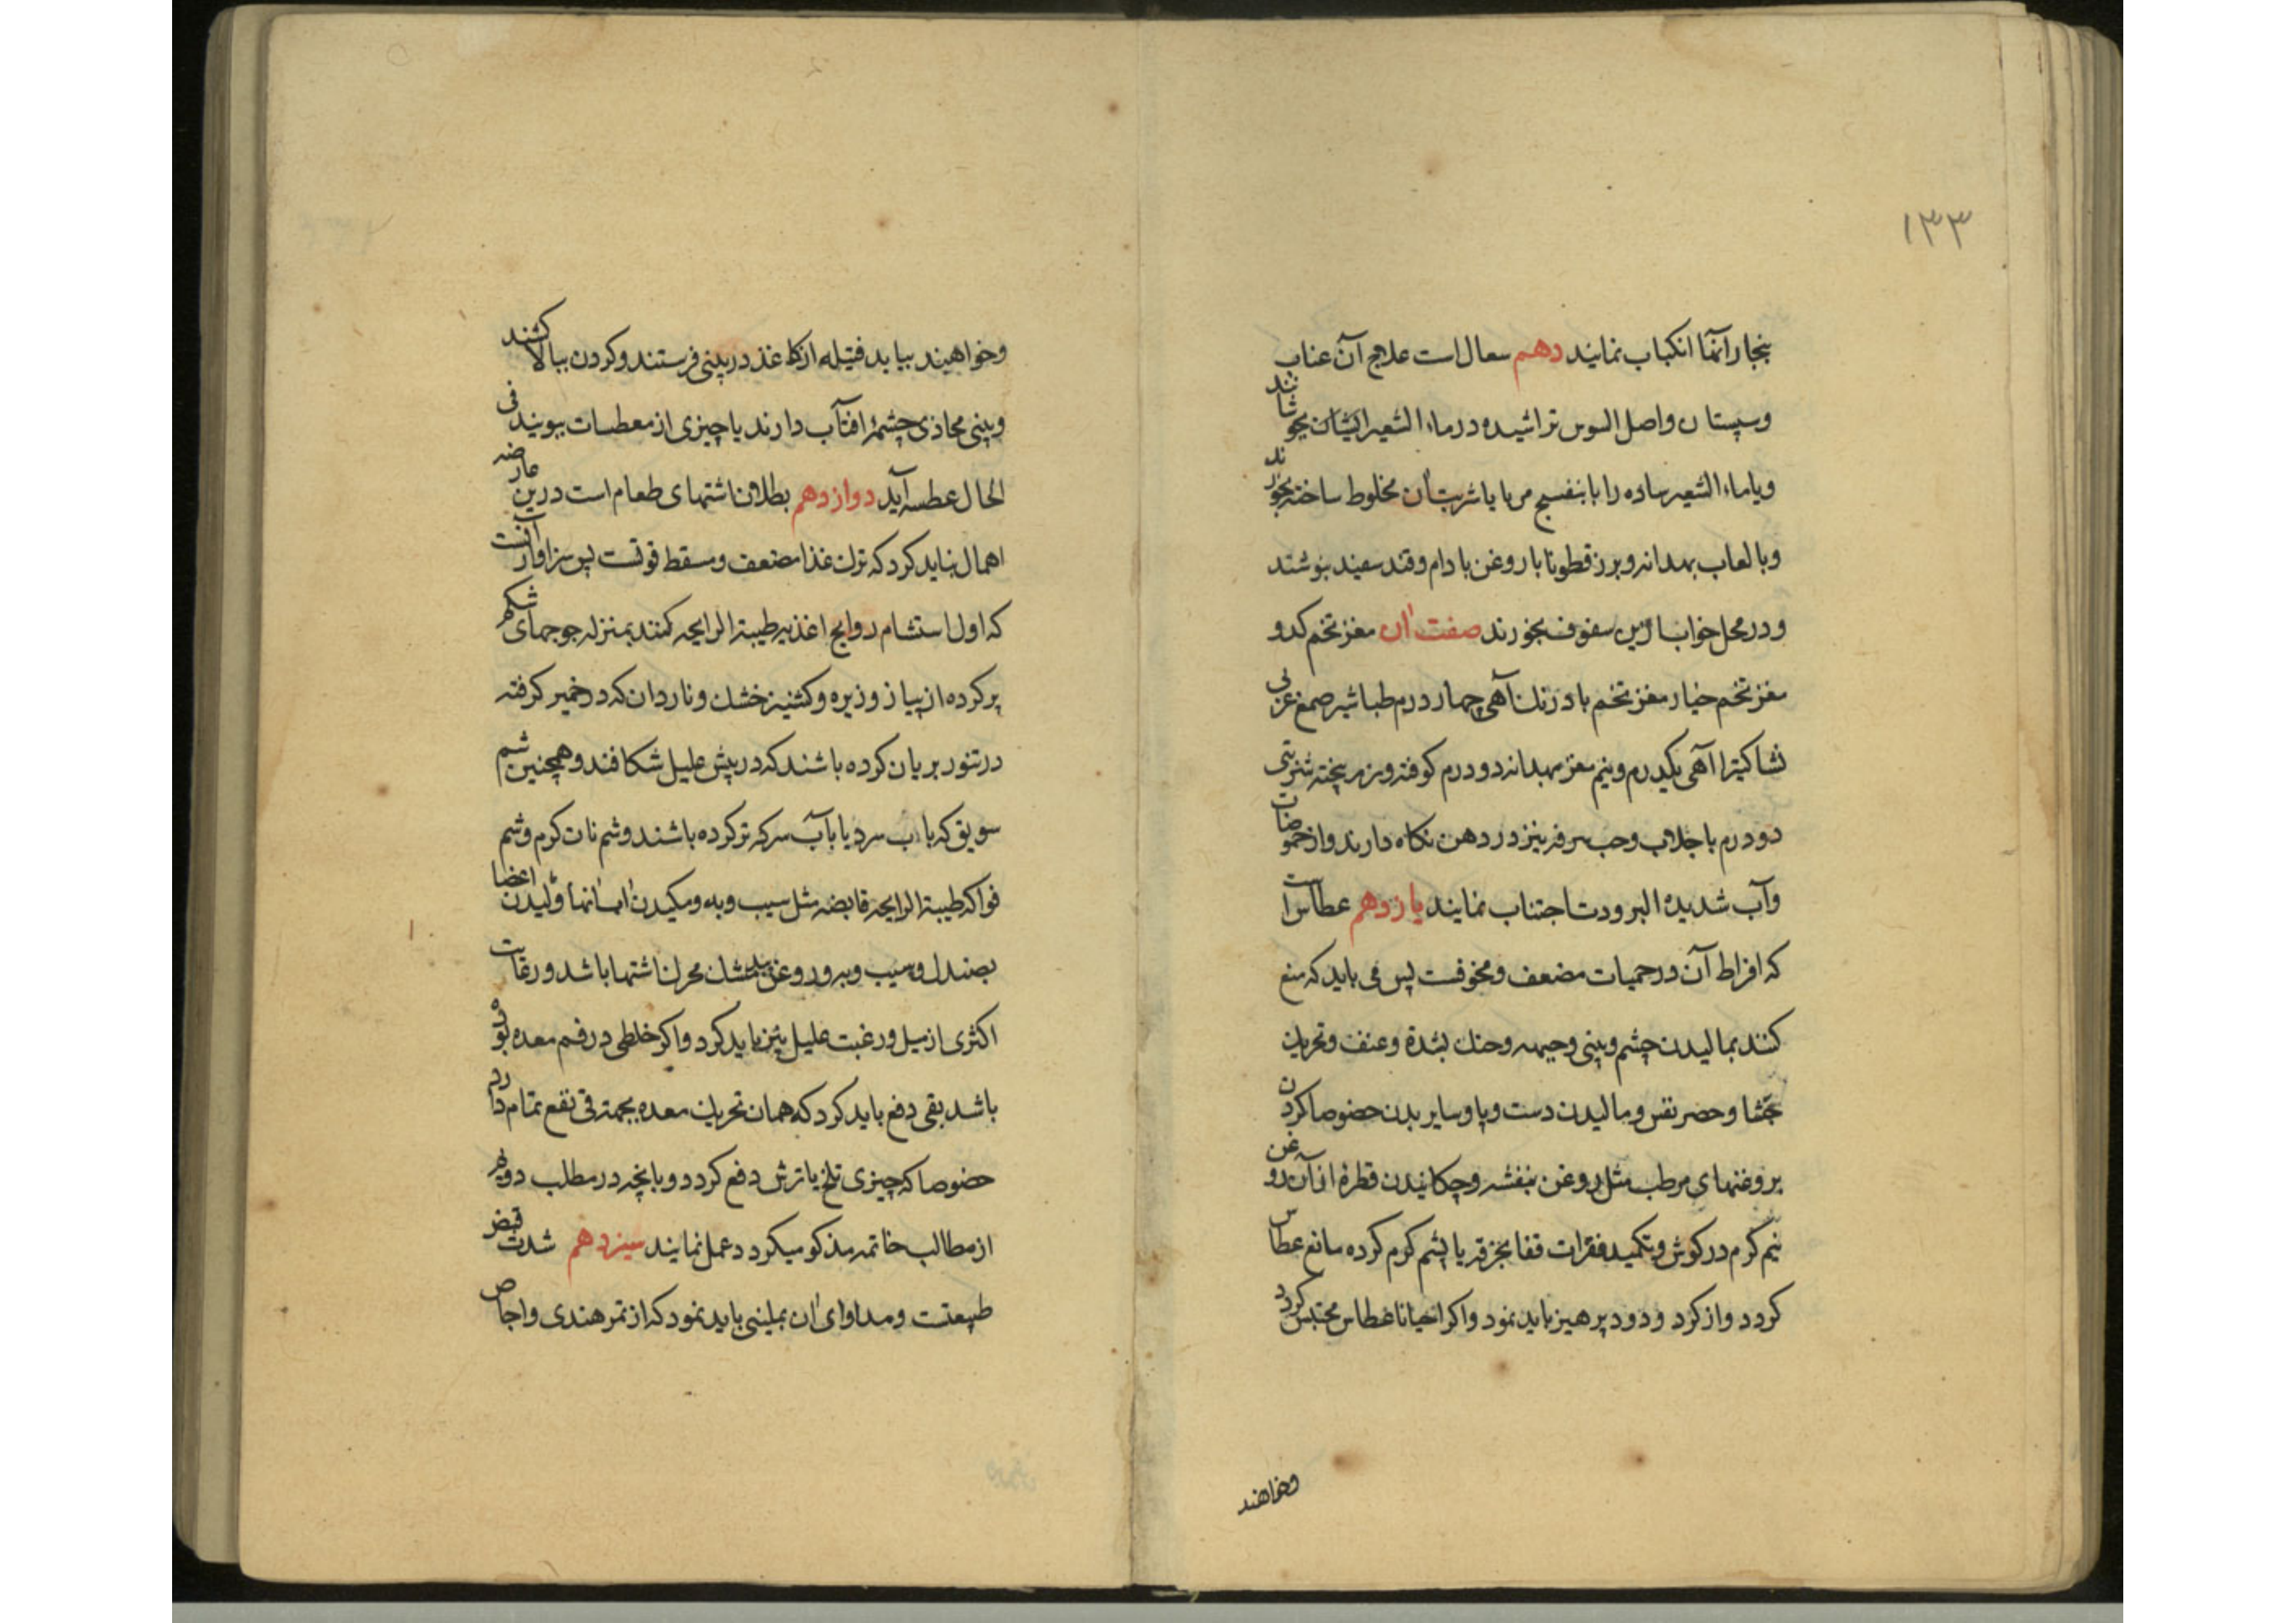 ۱۳۳
بنجار آنها انکباب نمایند دهم سعال است علاج آن عناب
وسپستان واصل السوس تراشیده در ماء الشعیر ایشان بجوشانند
ویا ماء الشعیر ساده را با بنفسج مربا یا شربت آن مخلوط ساخته بخورند
وبا لعاب بهدانه وبرز قطونا با روغن بادام وقند سفید بنوشند
ودر محل خواب ازین سفوف بخورند صفت آن مغز تخم کدو
مغز تخم خیار مغز تخم بادرنک آهی چهار درم طباشیر صمغ عربی
نشا کتیرا آهی یکدرم ونیم مغز بهدانه دو درم کوفته وبزند پخته شربتی
دو درم با جلاب وحب سرفه نیز در دهن نکاه دارند واز حموضات
وآب شدیده البرودت اجتناب نمایند یازدهم عطاس است
که افراط آن در حمیات مضعف ومخوفست پس می باید که منع
کنند بمالیدن چشم وبینی وجبهه وحنک بشدة وعنف وتحریک
جشا وحصر نفس ومالیدن دست وپا وسایر بدن خصوصا کردن
بروغنهای مرطب مثل روغن بنفشه وچکانیدن قطرۀ از آن روغن
نیم کرم در کوش وتکمید فقرات قفا بخرقه یا پشم کرم کرده مانع عطاس
کردد واز کرد ودود پرهیز باید نمود واکر احیانا عطاس محتبس کردد
وخواهند
وخواهند بیاید فتیله از کاغذ در بینی فرستند وکردن ببالا کشند
وبینی محاذی چشمۀ افتاب دارند یا چیزی از معطسات ببویند فی
الحال عطسه آید دوازدهم بطلان اشتهای طعام است درین عارضه
اهمال نباید کرد که ترک غذا مضعف ومسقط قوتست پس سزاوار آنست
که اول استشمام روایح اغذیه طیبة الرایحه کنند بمنزله جوجهای شکم
پر کرده از پیاز وزیره وکشنیز خشک وناردان که در خمیر کرفته
در تنور بریان کرده باشند که در پیش علیل شکافند وهمچنین شم
سویق که باب سرد یا بآب سرکه تر کرده باشند وشم نان کرم وشم
فواکه طیبة الرایحه قابضه مثل سیب وبه ومکیدن آبهای آنها ومالیدن اعضا
بصندل وسیب وبه وروغن بید مشک محرک اشتها باشد ورعایت
اکثری از میل ورغبت علیل نیز باید کرد واکر خلطی در فم معده بوده
باشد بقی دفع باید کرد که همان تحریک معده بجهة قی نفع تمام دارد
خصوصا که چیزی تلخ یا ترش دفع کردد وبانچه در مطلب دویم
از مطالب خاتمه مذکو میکردد عمل نمایند سیزدهم شدت قبض
طبیعتست ومداوای آن بملینی باید نمود که از تمر هندی واجاص